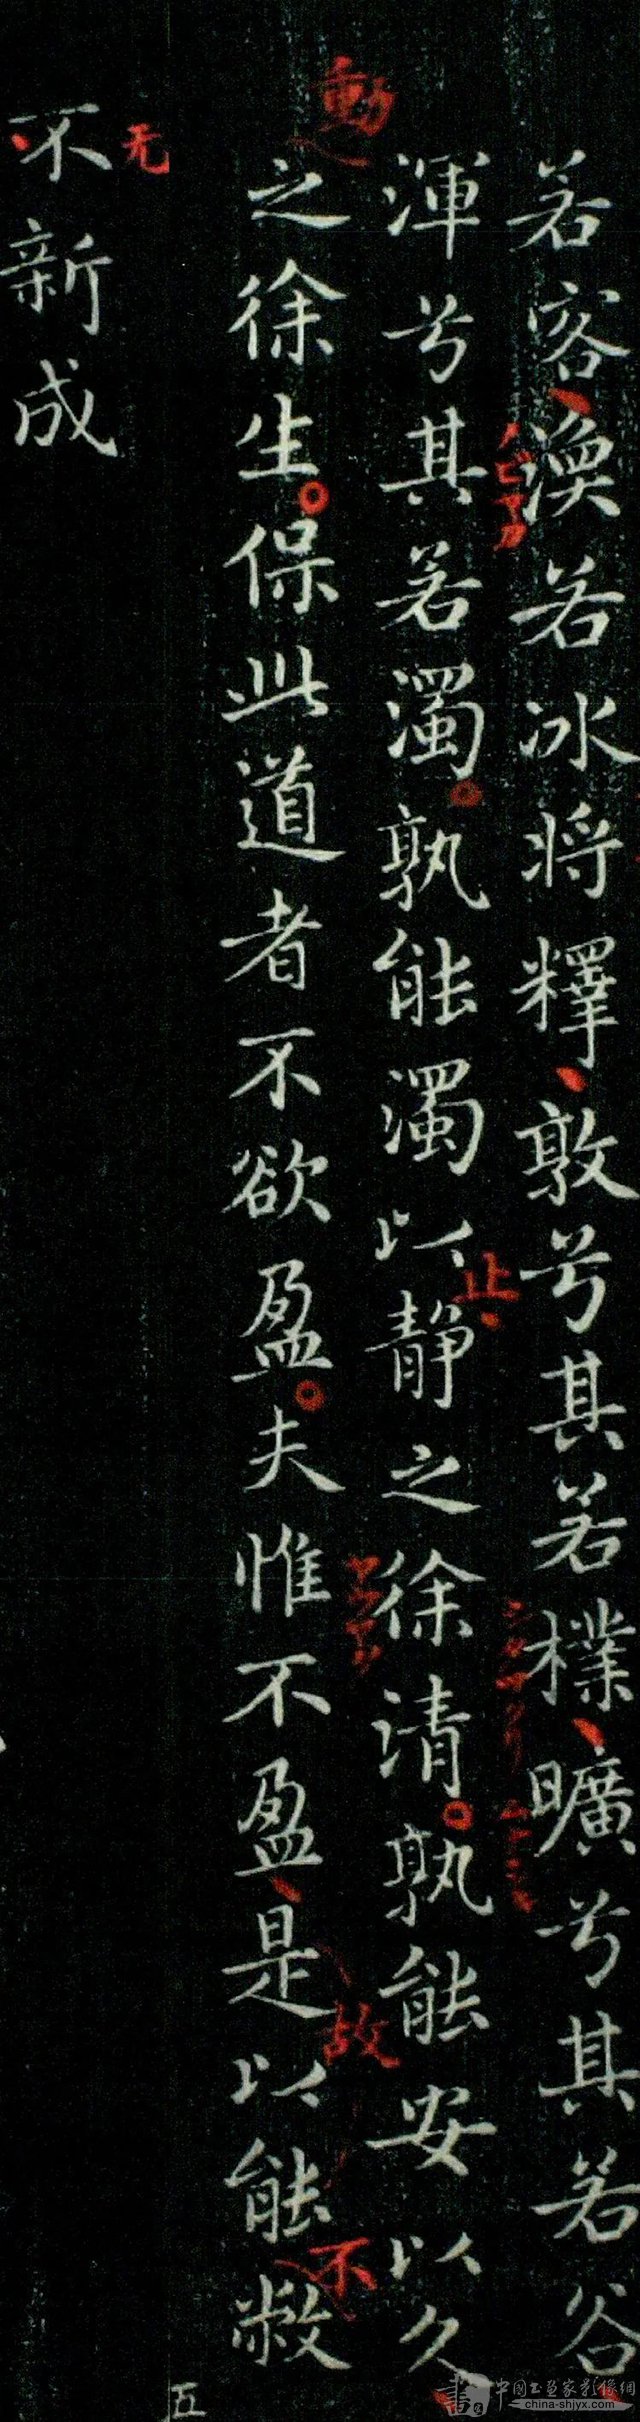 若容渙若冰將釋敦兮其若樸曠兮其若谷
渾兮其若濁孰能濁以靜之徐清孰能安以久
之徐生保此道者不欲盈夫惟不盈是以能敝
不新成
動
止
故
不
无
五
中国书画家影像網
china-shjyx.com